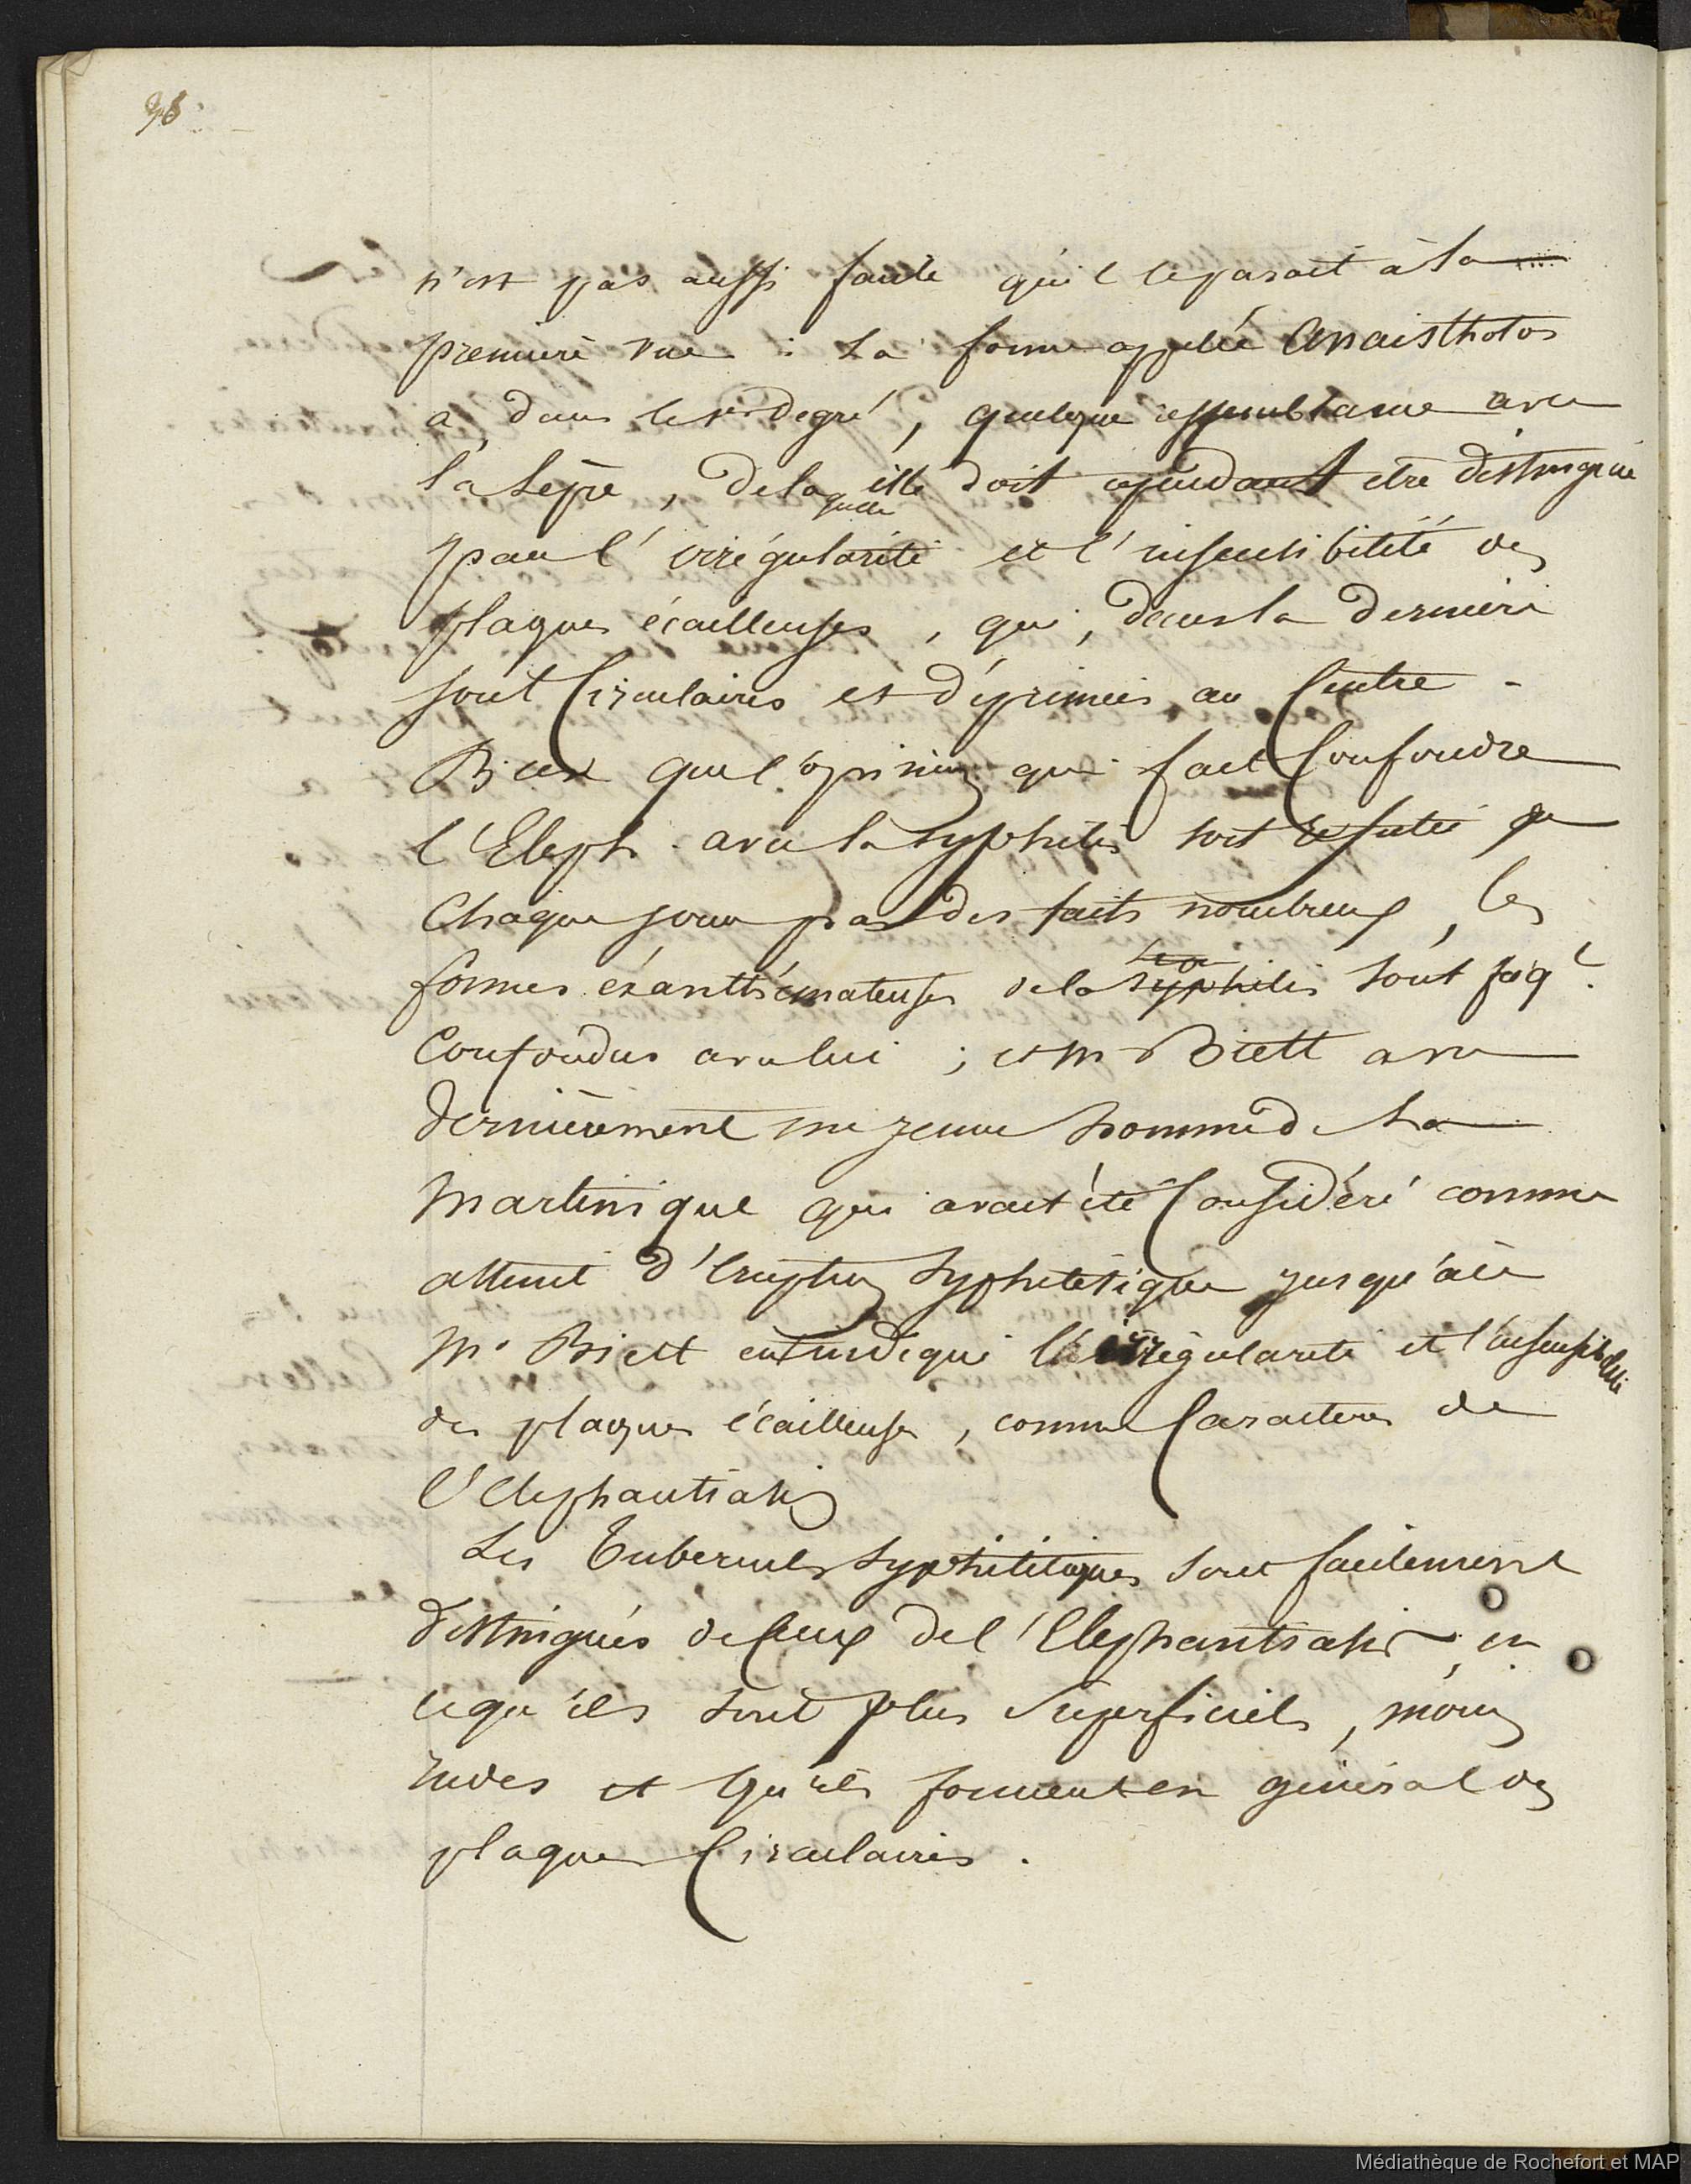 n'est pas aussi facile qu'il le parait à la
première vue : la forme appelée Anaisthetos
a, dans le 1er degré, quelque ressemblance avec
la Lèpre, de laquelle elle doit cependant etre distinguée
par l'irrégularité et l'insensibilité des
plaques écailleuses, qui, dans la dernière
sont Circulaires et déprimées au Centre -
Bien que l'opinion qui fait Confondre
l'Eleph. avec la syphilis soit refutée
Chaque jour par des faits nombreux, les
formes éxanthémateuses de la syphilis sont
Confondues avec lui ; et Mr Biett a vu
dernièrement un jeune homme de la
Martinique qui avait été Considéré comme
atteint d'Eruption Syphilitique jusqu'à ce
Mr Biett eut indiqué l'irrégularité et l'insensibilité
des plaques écailleuses, comme Caracteres de
l'Elephantiasis
Les Tubercules syphilitiques sont facilement
distingués de Ceux de l'Elephantiasis, en
ce qu'ils sont plus Superficiels, moins
rudes et qu'ils forment en général des
plaques Circulaires.
Médiathèque de Rochefort et MAP